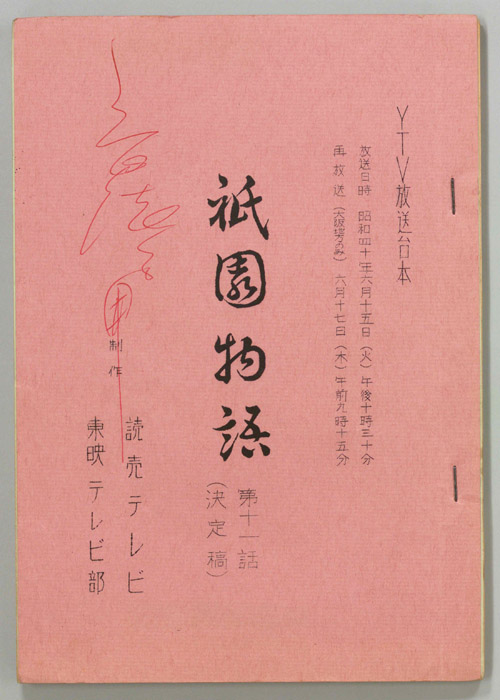 YTV放送台本
放送日時 昭和四十年六月十五日(火)午後十時三十分
再放送(大阪地方のみ)六月十七日(木)午前九時十五分
祇園物語
第十一話
(決定稿)
制作
読売テレビ
東映テレビ部